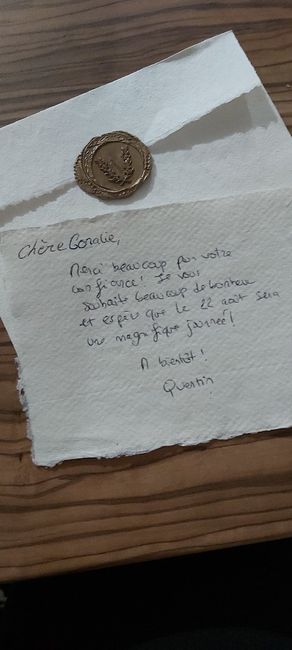 Chère Coralie,
Merci beaucoup pour votre
confiance! Je vous
souhaite beaucoup de bonheur
et espère que le 22 août sera
une magnifique journée!
A bientôt!
Quentin